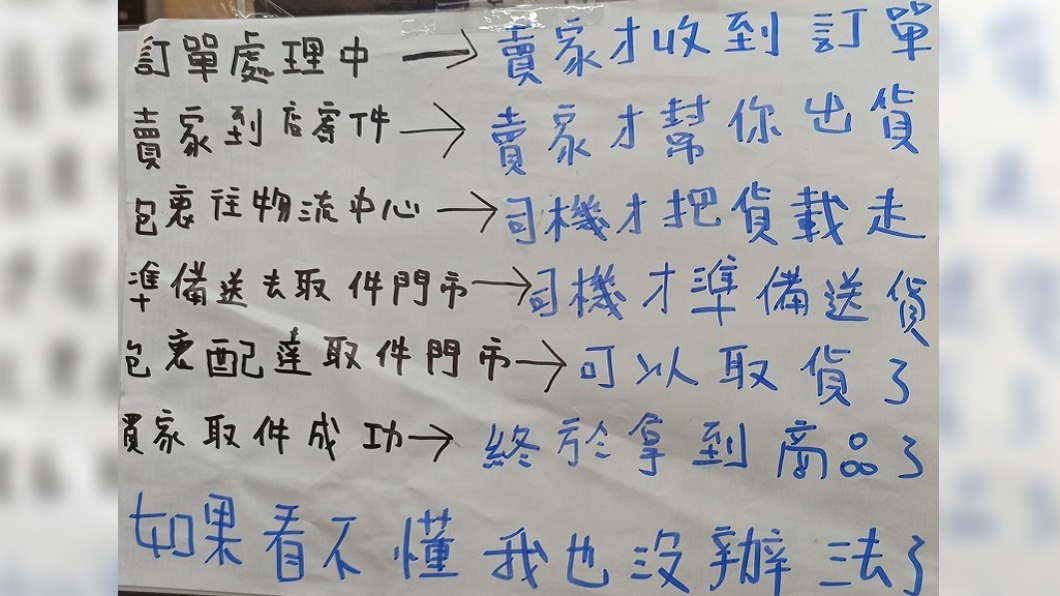 訂單處理中 → 賣家才收到訂單
賣家到店寄件 → 賣家才幫你出貨
包裹往物流中心 → 司機才把貨載走
準備送去取件門市 → 司機才準備送貨
包裹配達取件門市 → 可以取貨了
買家取件成功 → 終於拿到商品了
如果看不懂 我也沒辦法了